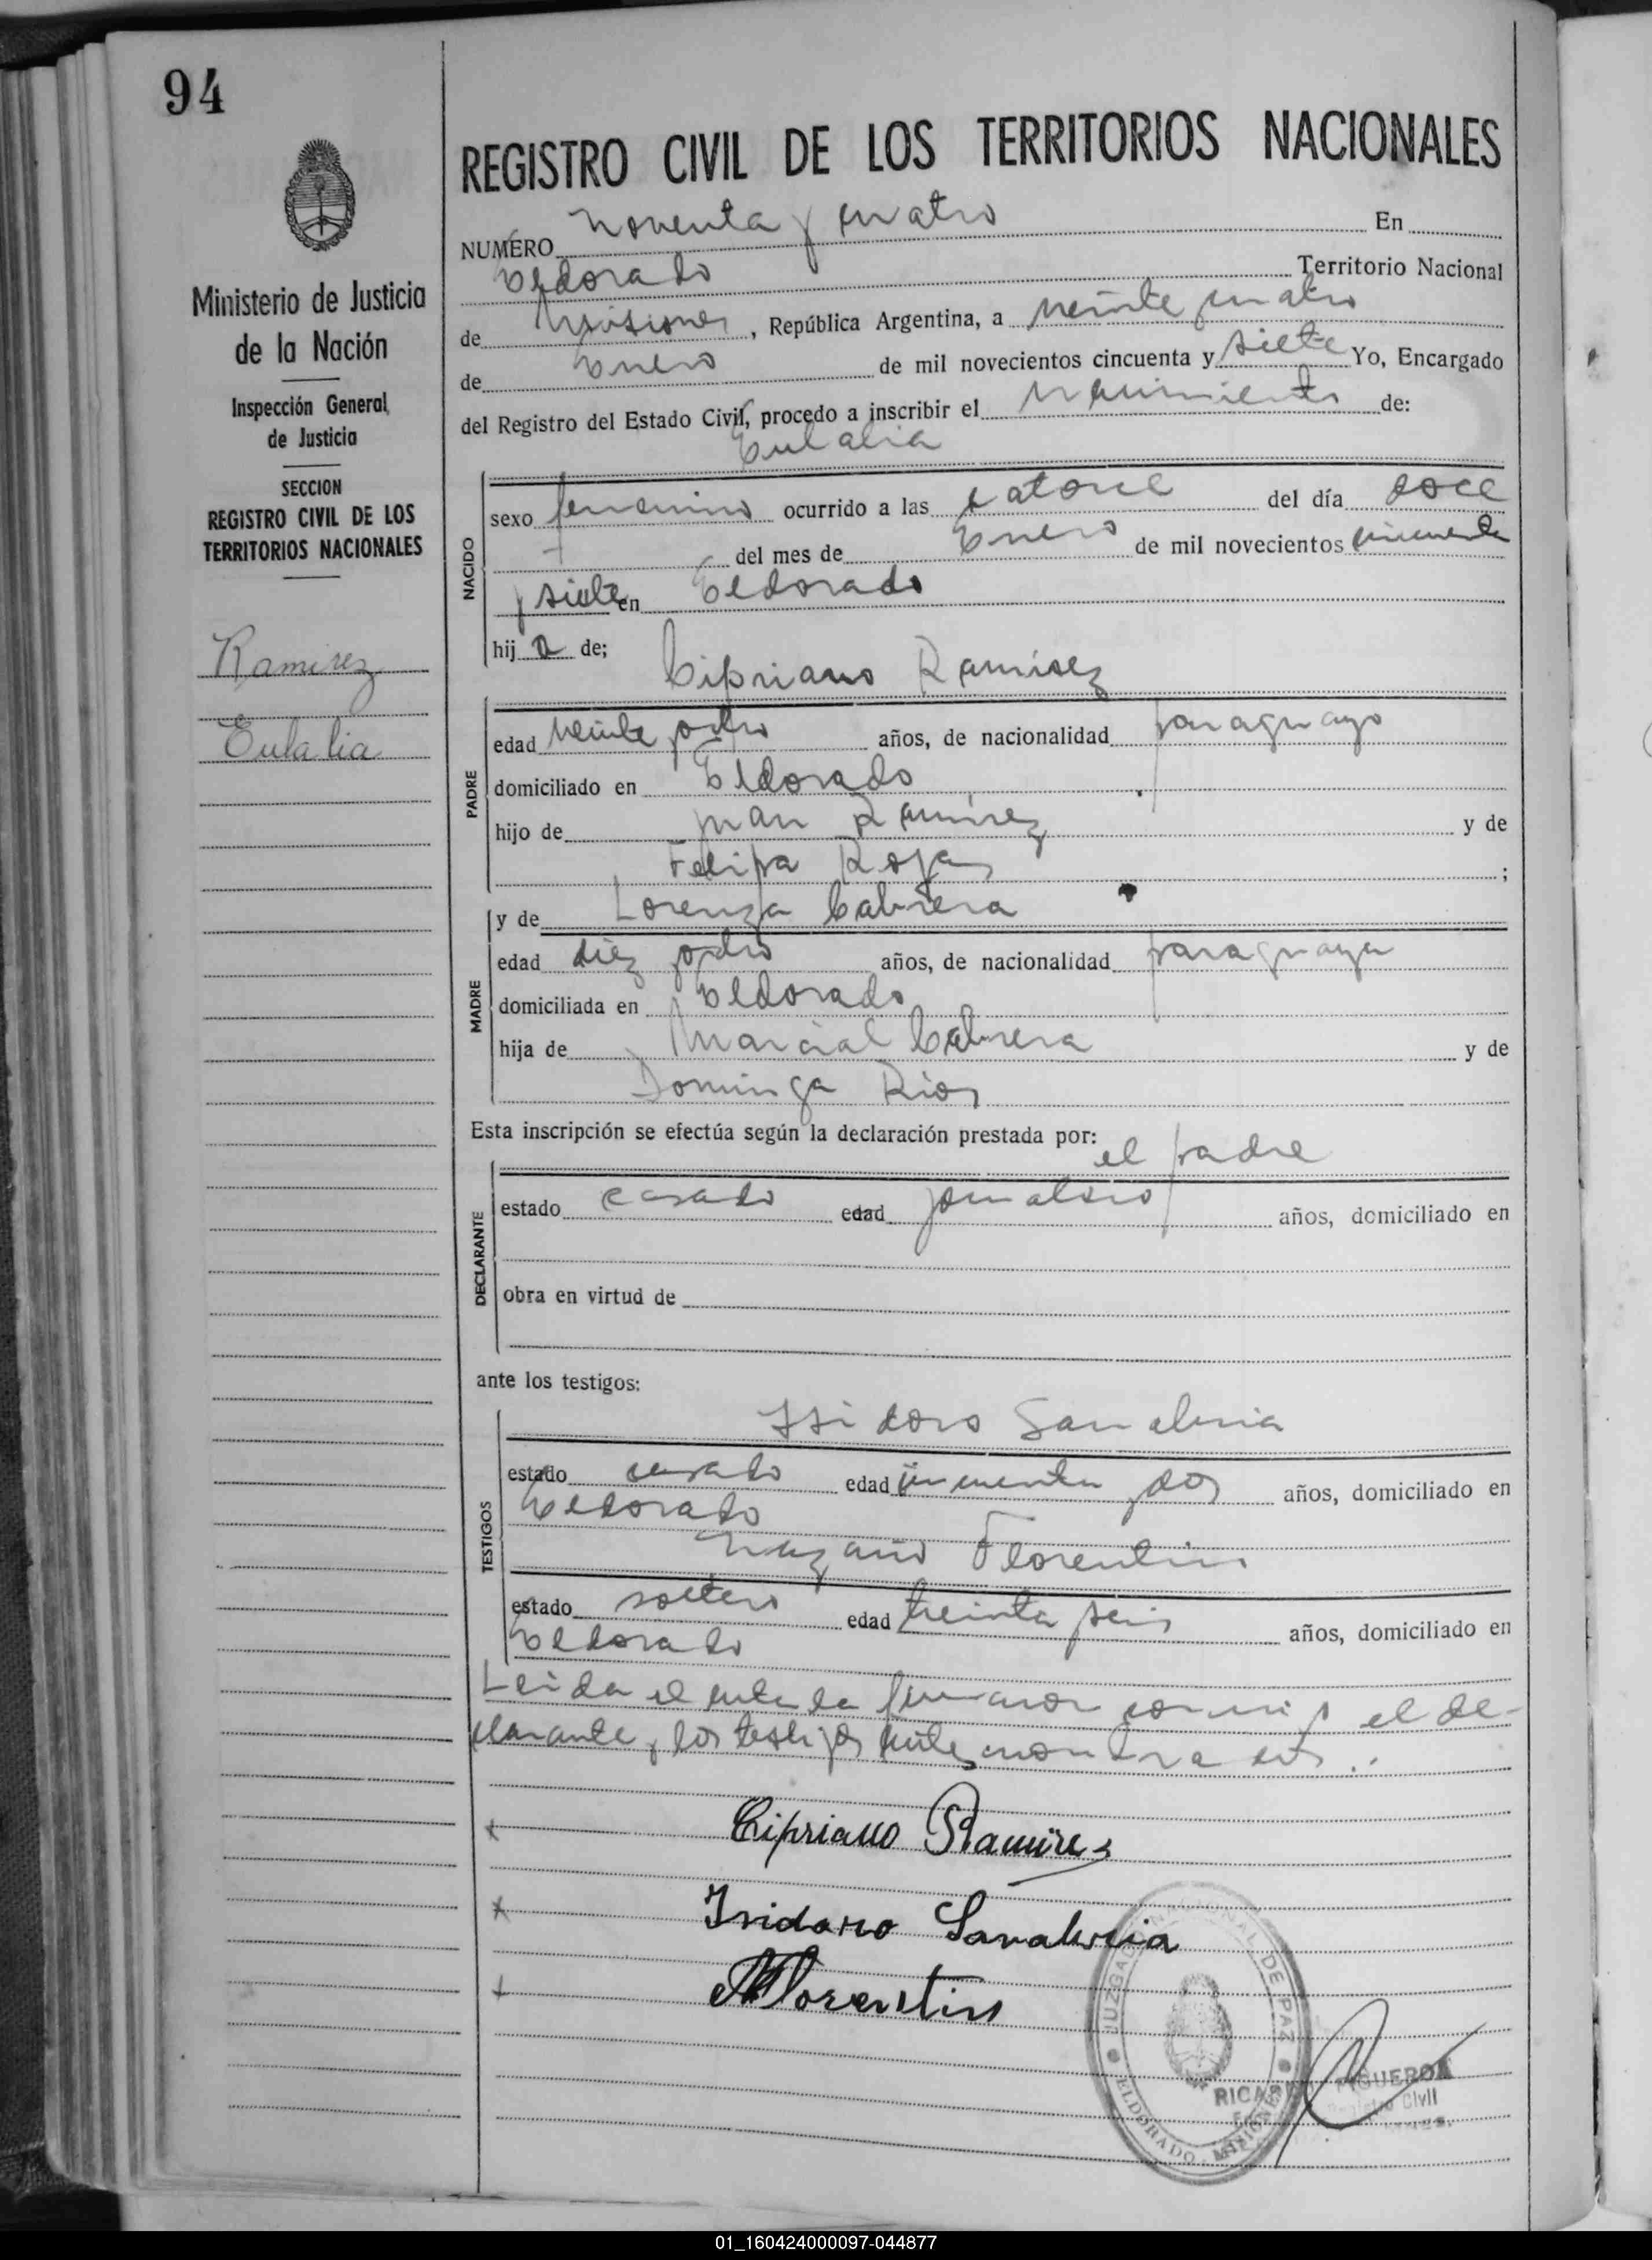 94
Ministerio de Justicia
de la Nación
Inspección General
de Justicia
SECCION
REGISTRO CIVIL DE LOS
TERRITORIOS NACIONALES
Ramirez
Eulalia
REGISTRO CIVIL DE LOS TERRITORIOS NACIONALES
NUMERO noventa y cuatro En
Eldorado Territorio Nacional
de Misiones, República Argentina, a veinte cuatro
de Enero de mil novecientos cincuenta y siete Yo, Encargado
del Registro del Estado Civil, procedo a inscribir el nacimiento de:
Eulalia
NACIDO
sexo femenino ocurrido a las catorce del día doce
del mes de Enero de mil novecientos cincuenta
y siete en Eldorado
hij a de;
Cipriano Ramirez
PADRE
edad veinte y ocho años, de nacionalidad paraguayo
domiciliado en Eldorado
hijo de Juan Ramirez y de
Felipa Rojas ;
y de Lorenza Cabrera
MADRE
edad diez y ocho años, de nacionalidad paraguaya
domiciliada en Eldorado
hija de Marcial Cabrera y de
Dominga Rios
Esta inscripción se efectúa según la declaración prestada por:
el padre
DECLARANTE
estado casado edad jornalero años, domiciliado en
obra en virtud de
ante los testigos:
TESTIGOS
Isidoro Sanabria
estado casado edad cincuenta y dos años, domiciliado en
Eldorado
Florentin
estado soltero edad treinta y seis años, domiciliado en
Eldorado
Leida el acta la firmaron conmigo el de-
clarante y los testigos
Cipriano Ramires
Isidoro Sanabria
Florentin
JUZGADO NACIONAL DE PAZ
ELDORADO - MISIONES
FIGUEROA
Civil
01_160424000097-044877